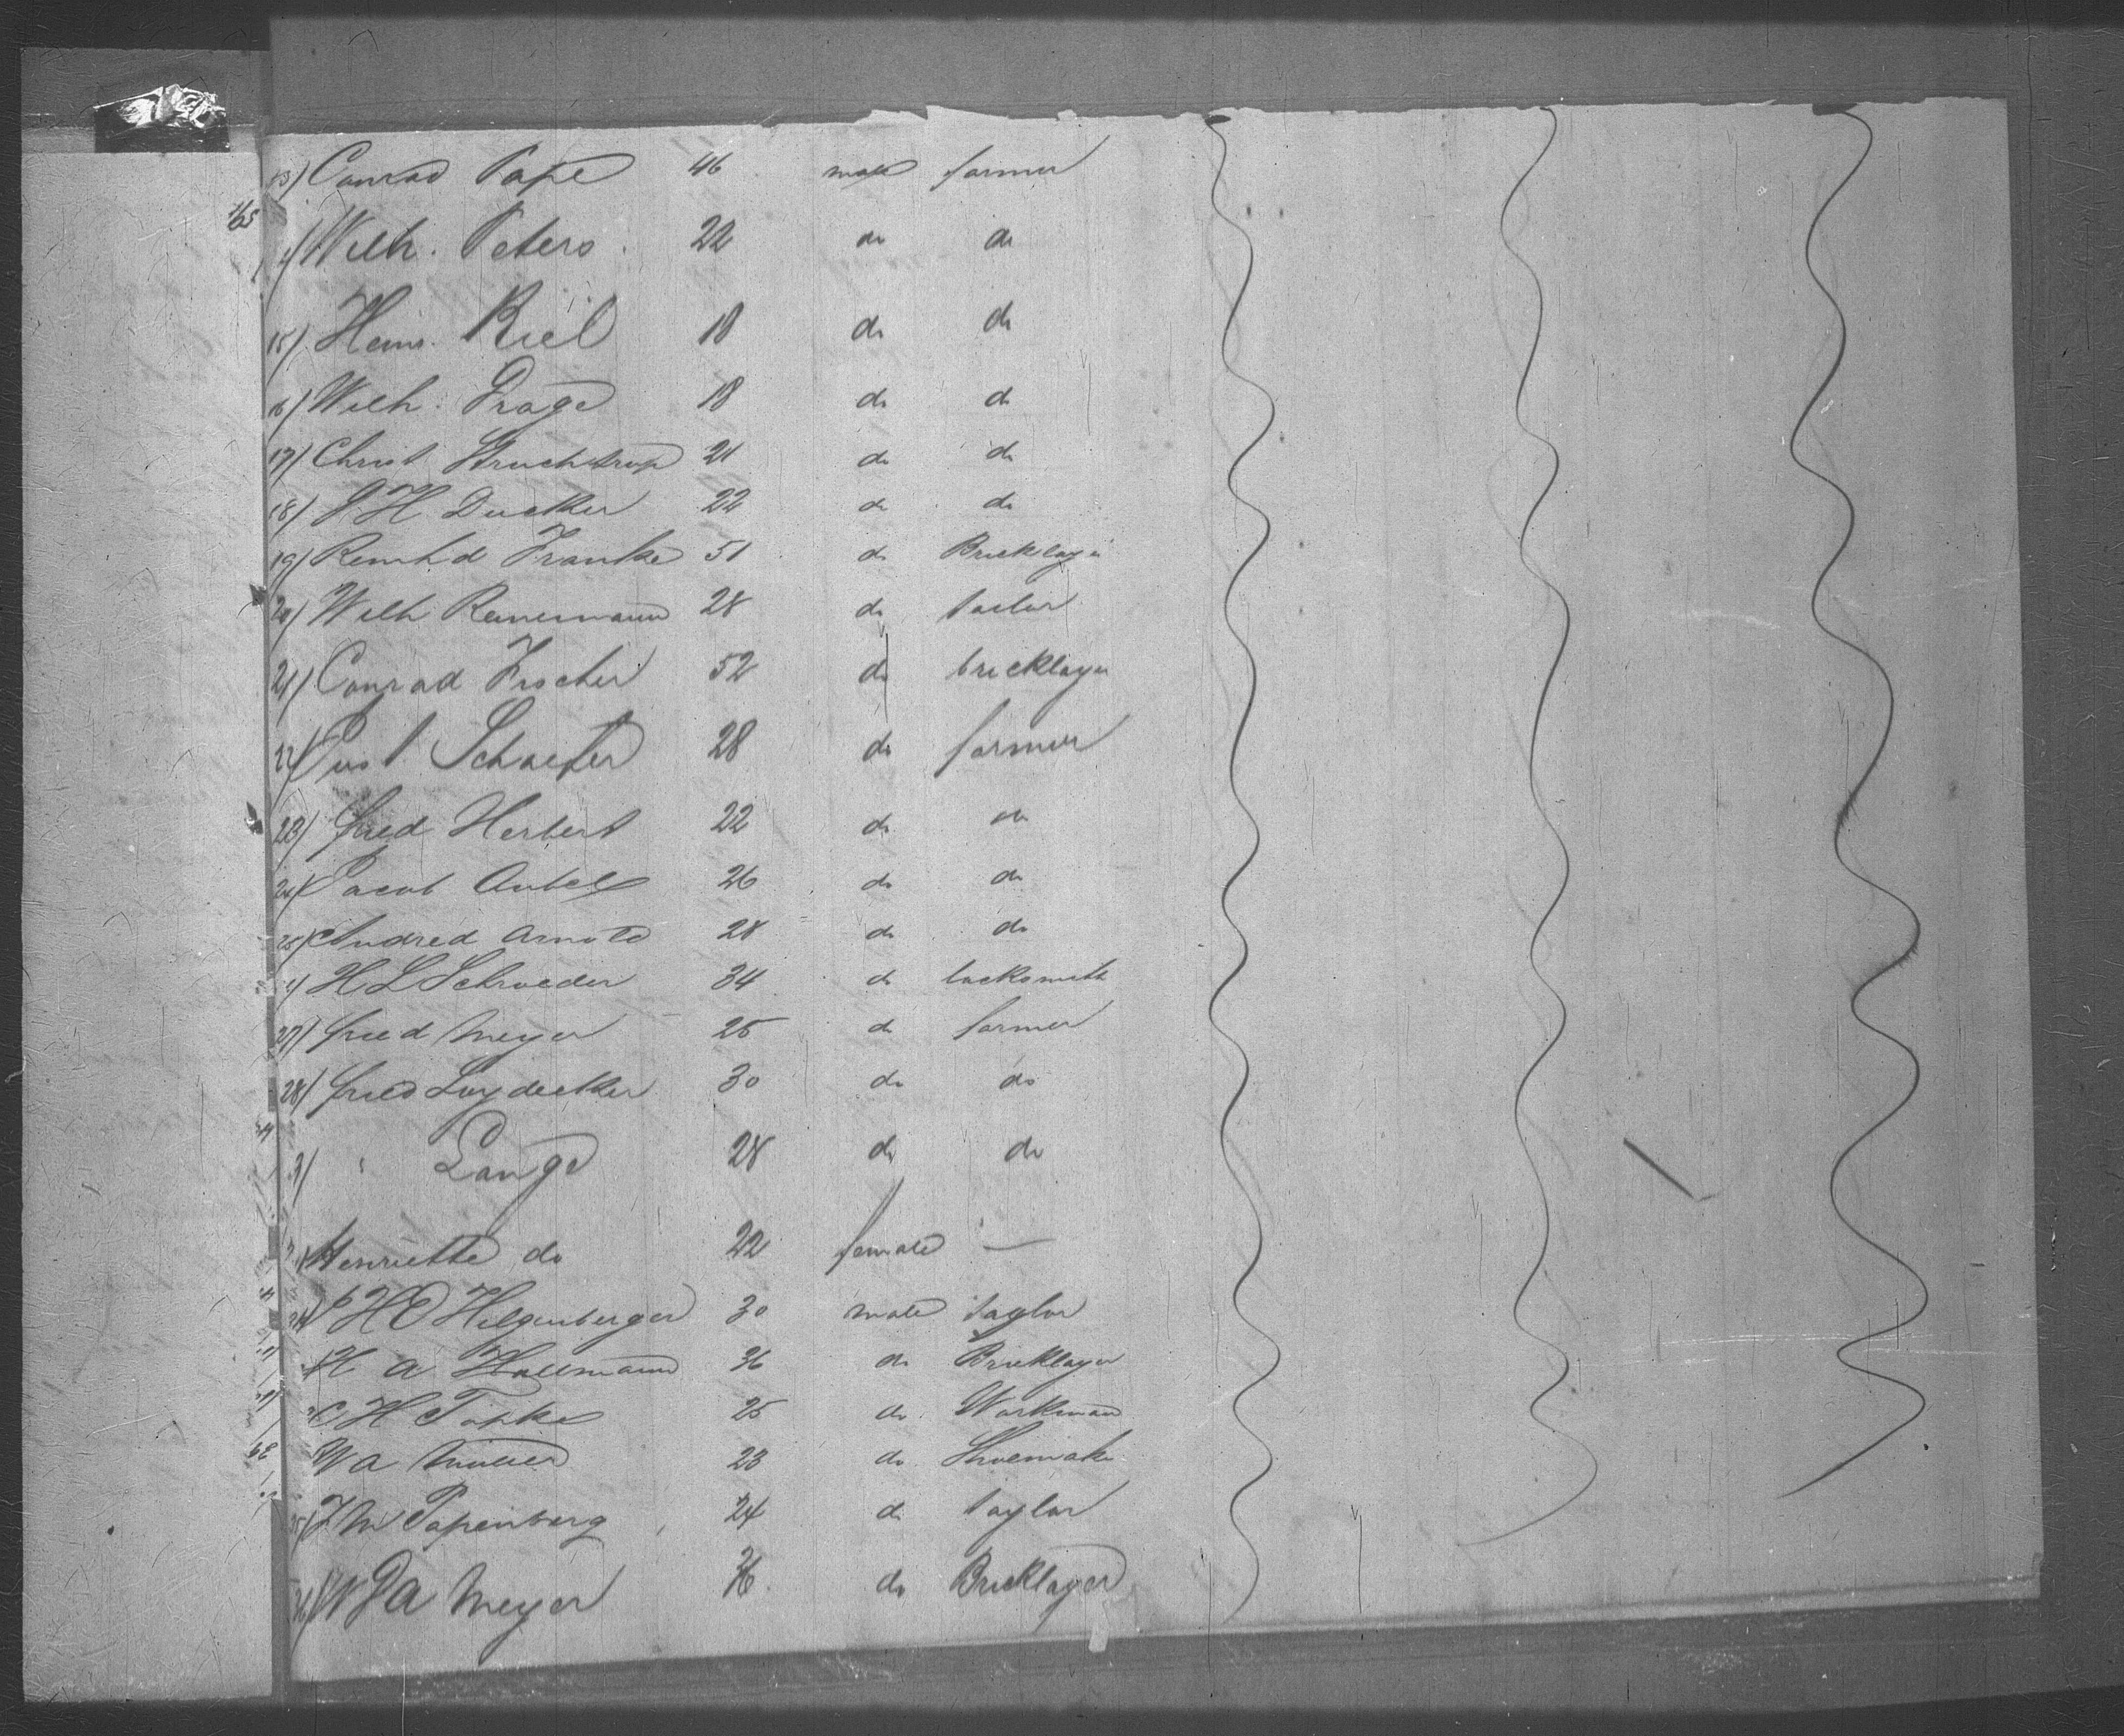 13) Conrad Pape 46 male farmer
Wilh. Peters 22 do do
15) Heinr. Riel 18 do do
16) Wilh. Prage 18 do do
17) Christ Struchtrup 21 do do
18) J H Duetker 22 do do
19) Reinhd Franke 51 do Bricklayer
20) Wilh Reinemann 28 do tailor
21) Conrad Fischer 52 do bricklayer
22) Gust. Schaefer 28 do farmer
23) fried Herbert 22 do do
24) Jacob Aubel 26 do do
25) Andred Arnold 28 do do
H L Schroeder 34 do locksmith
27) fried Meyer 25 do farmer
28) fried Luydecker 30 do do
" Lange 28 do do
Henriette do 22 female —
H Hilgenberger 30 male taylor
H A Hallmann 36 do Bricklayer
C H Töpke 25 do Workman
W A Müller 23 do Shoemaker
Papenberg 24 do taylor
Meyer 26 do Bricklayer